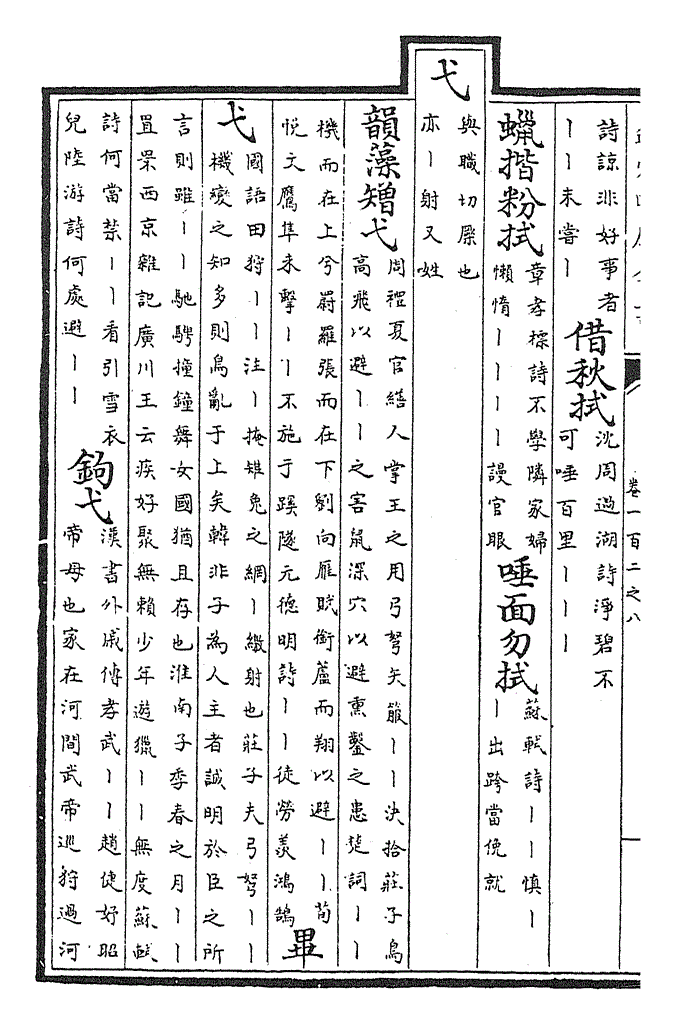 卷一百二之八
詩諒非好事者
丨丨未嘗丨
借秋拭
沈周過湖詩淨碧不
可唾百里丨丨丨
蠟揩粉拭
章孝標詩不學隣家婦
懶惰丨丨丨丨謾官眼
唾面勿拭
蘇軾詩丨丨慎丨
丨出跨當俛就
弋
與職切橜也
亦丨射又姓
韻藻矰弋
周禮夏官繕人掌王之用弓弩矢箙丨丨決拾莊子鳥
高飛以避丨丨之害鼠深穴以避熏鑿之患楚詞丨丨
機而在上兮罻羅張而在下劉向雁賦銜蘆而翔以避丨丨荀
悅文鷹隼未擊丨丨不施于蹊隧元德明詩丨丨徒勞羨鴻鵠
畢弋
國語田狩丨丨注丨掩雉兔之網丨繳射也莊子夫弓弩丨丨
機變之知多則鳥亂于上矣韓非子為人主者誠明於臣之所
言則雖丨丨馳騁撞鐘舞女國猶且存也淮南子季春之月丨丨
罝罘西京雜記廣川王云疾好聚無賴少年遊獵丨丨無度蘇軾
詩何當禁丨丨看引雪衣
兒陸游詩何處避丨丨
鉤弋
漢書外戚傳孝武丨丨趙倢伃昭
帝母也家在河間武帝巡狩過河